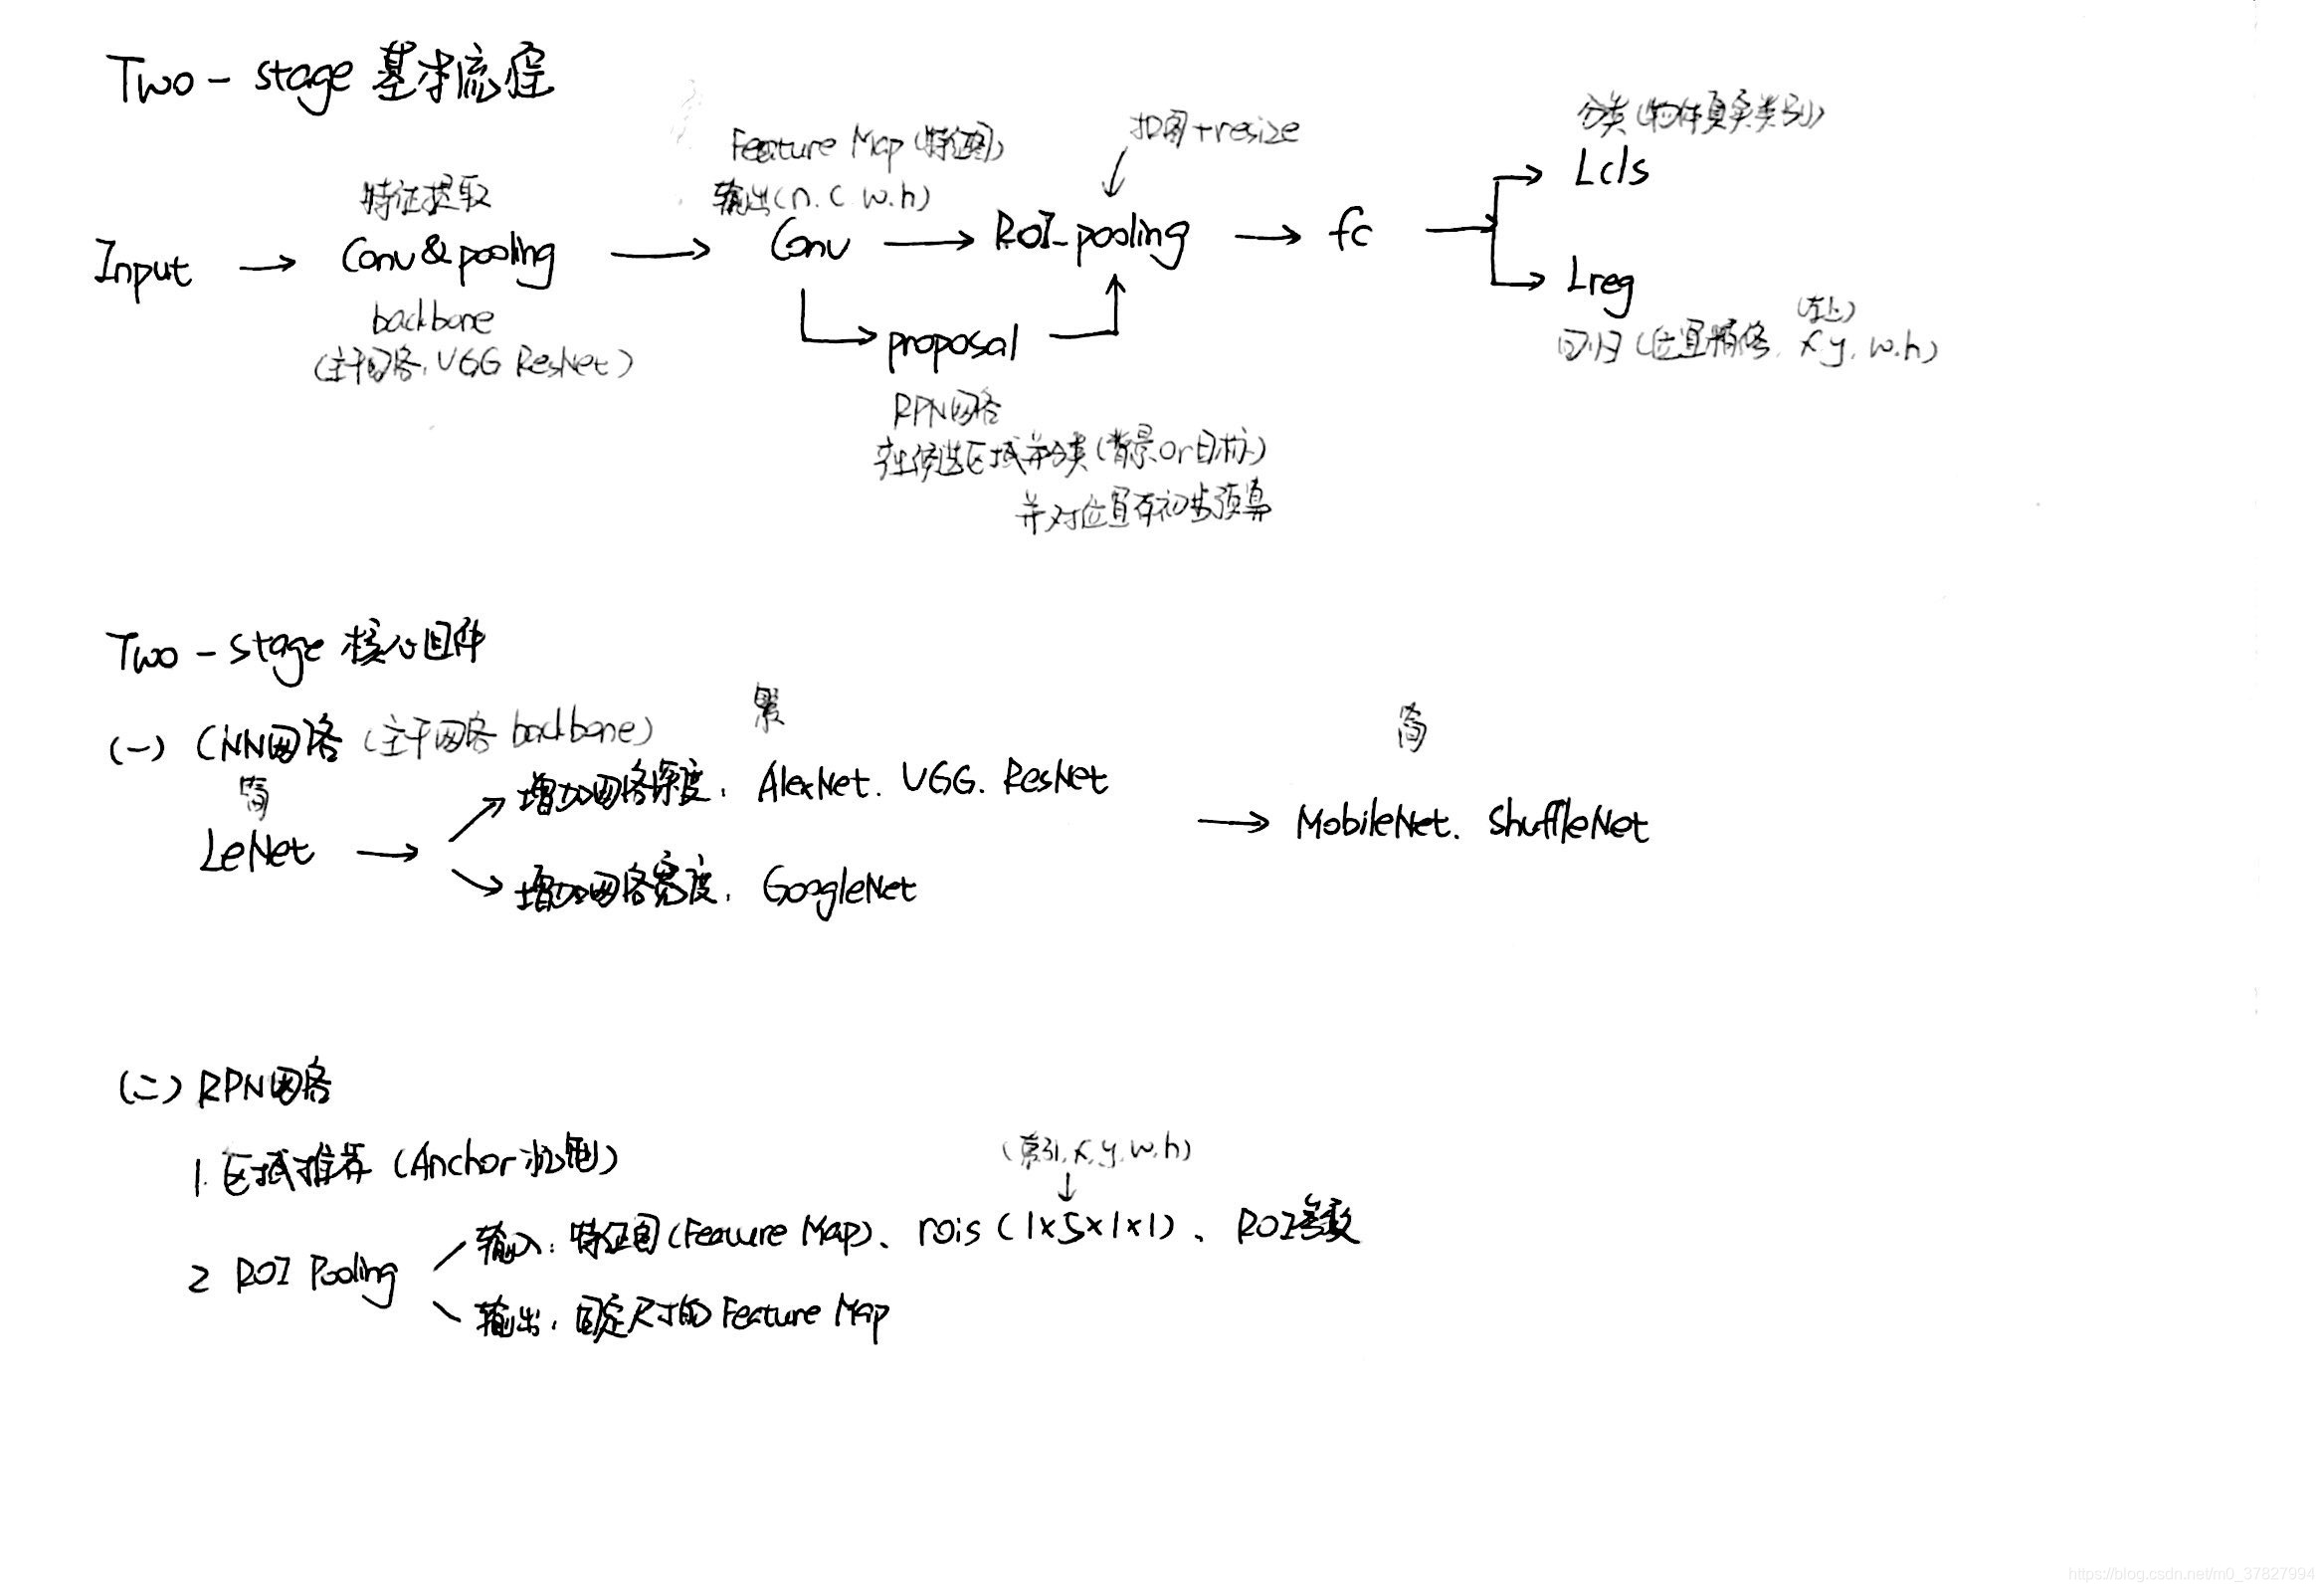 Two-stage 基本流程
分类(物体真实类别)
抠图+resize
Feature Map(特征图)
输出(n.c.w.h)
特征提取
Input → Conv&pooling → Conv → ROI-pooling → fc → Lcls
Lreg
backbone
(主干网络, VGG ResNet)
proposal
(左上)
回归(位置精修, x,y,w.h)
RPN网络
产生候选区域并分类(背景or目标)
并对位置有初步预算
Two-stage 核心组件
(一) CNN网络 (主干网络 backbone)
累
简
简
增加网络深度, AlexNet. VGG. ResNet
LeNet → → MobileNet. ShuffleNet
增加网络宽度, GoogleNet
(二) RPN网络
1. 区域推荐 (Anchor机制)
(索引,x,y,w,h)
输入: 特征图(Feature Map)、rois (1×5×1×1)、ROI参数
2 ROI Pooling
输出: 固定尺寸的 Feature Map
https://blog.csdn.net/m0_37827994